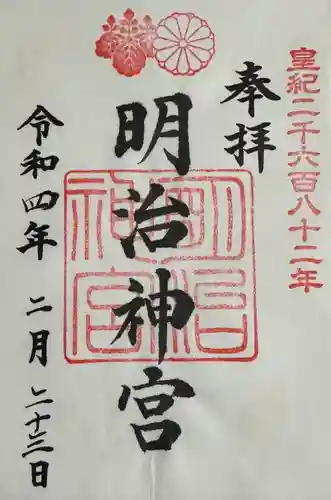 皇紀二千六百八十二年
奉拝
明治神宮
明治神宮
令和四年 二月 二十三日